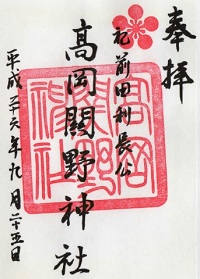 奉拝
祀前田利長公
高岡關野神社
平成二十六年九月二十五日